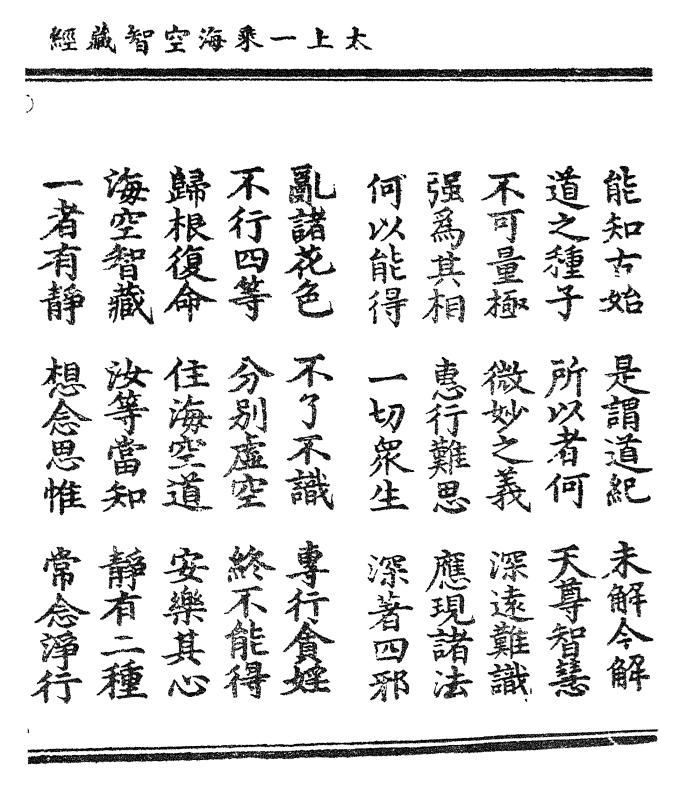 太上一乘海空智藏經
能知古始 是謂道紀 未解今解
道之種子 所以者何 天尊智慧
不可量極 微妙之義 深遠難識
强爲其相 惠行難思 應現諸法
何以能得 一切衆生 深著四邪
亂諸花色 不了不識 專行貪婬
不行四等 分別虛空 終不能得
歸根復命 住海空道 安樂其心
海空智藏 汝等當知 靜有二種
一者有靜 想念思惟 常念淨行